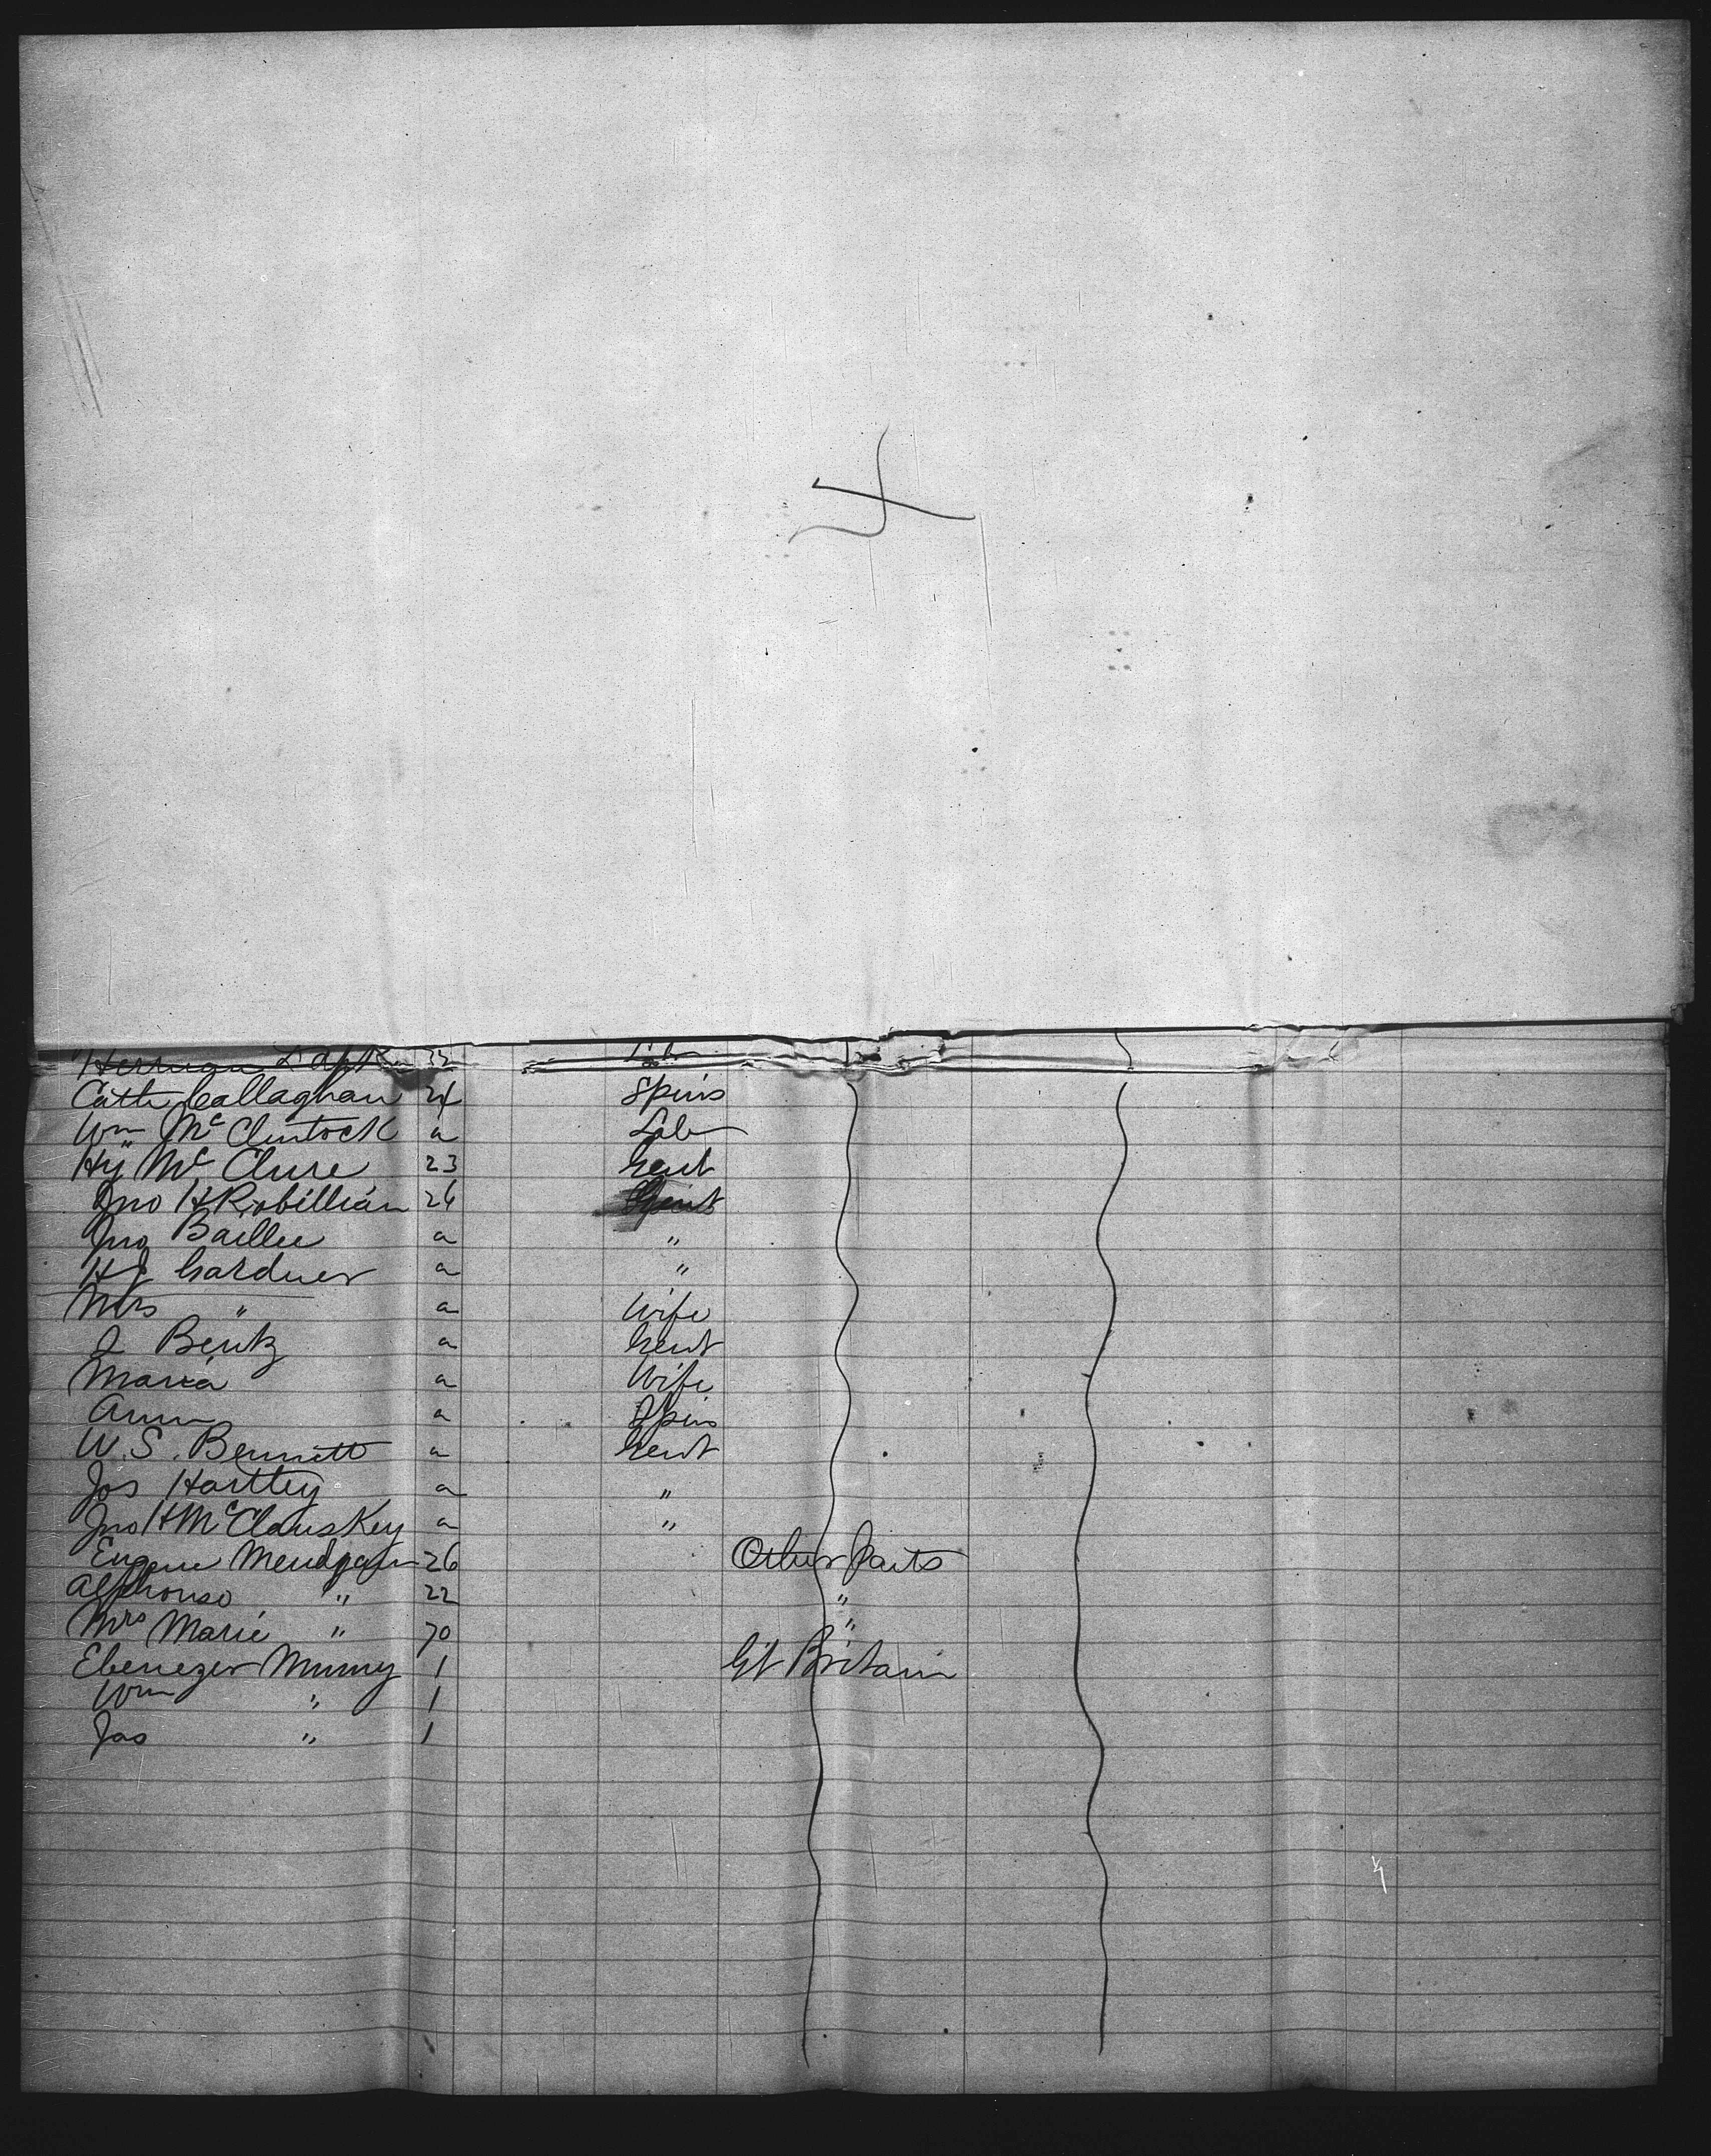 Herman 32 Lab
Cath Callaghan 24 Spins
Wm McClintock a Lab
Hy McClure 23 Gent
Jno H Robillian 26 Gent
Jno Baillee a "
H J Gardner a "
Mrs " a Wife
J Bentz a Gent
Maria a Wife
Ann a Spin
W. S. Bennett a Gent
Jos Hartley a "
Jno H McClauskey a "
Eugene 26 Other Parts
Alphonso " 22 "
Mrs Marie " 70 "
Ebenezer Murray 1 Gt Britain
Wm " 1
Jas " 1